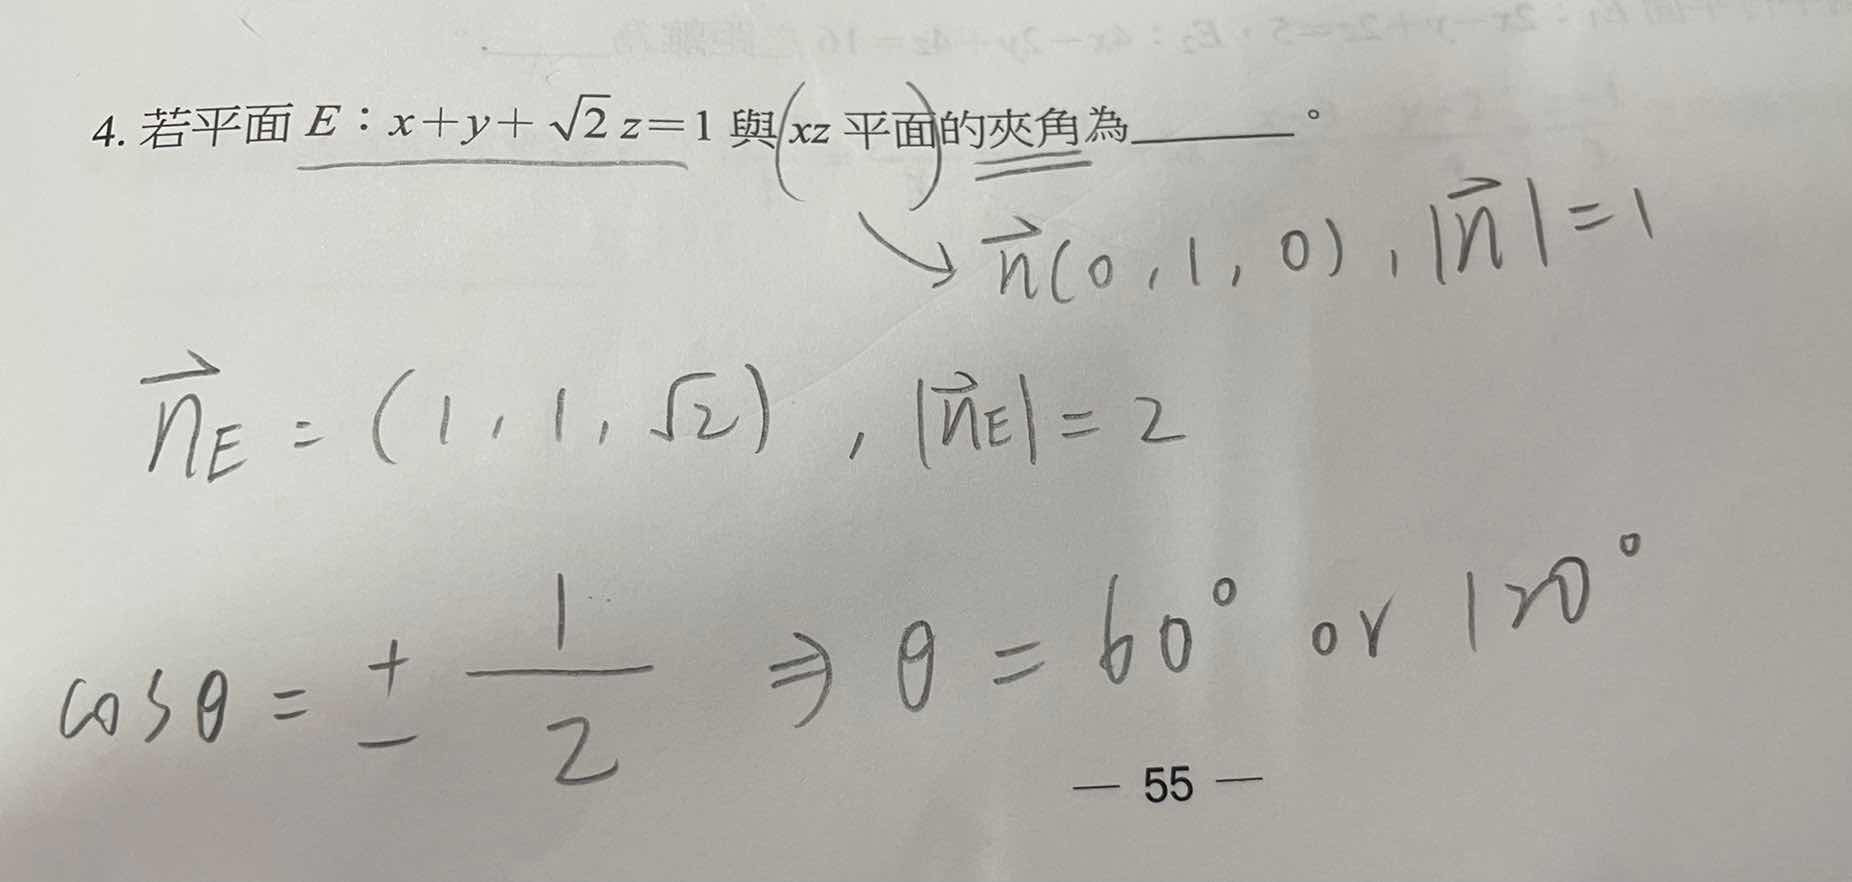 4. 若平面 E：x+y+√2 z=1 與 xz 平面的夾角為______。
→ n⃗(0,1,0), |n⃗|=1
n⃗E = (1,1,√2), |n⃗E|=2
cosθ = ± 1/2 ⇒ θ = 60° or 120°
— 55 —